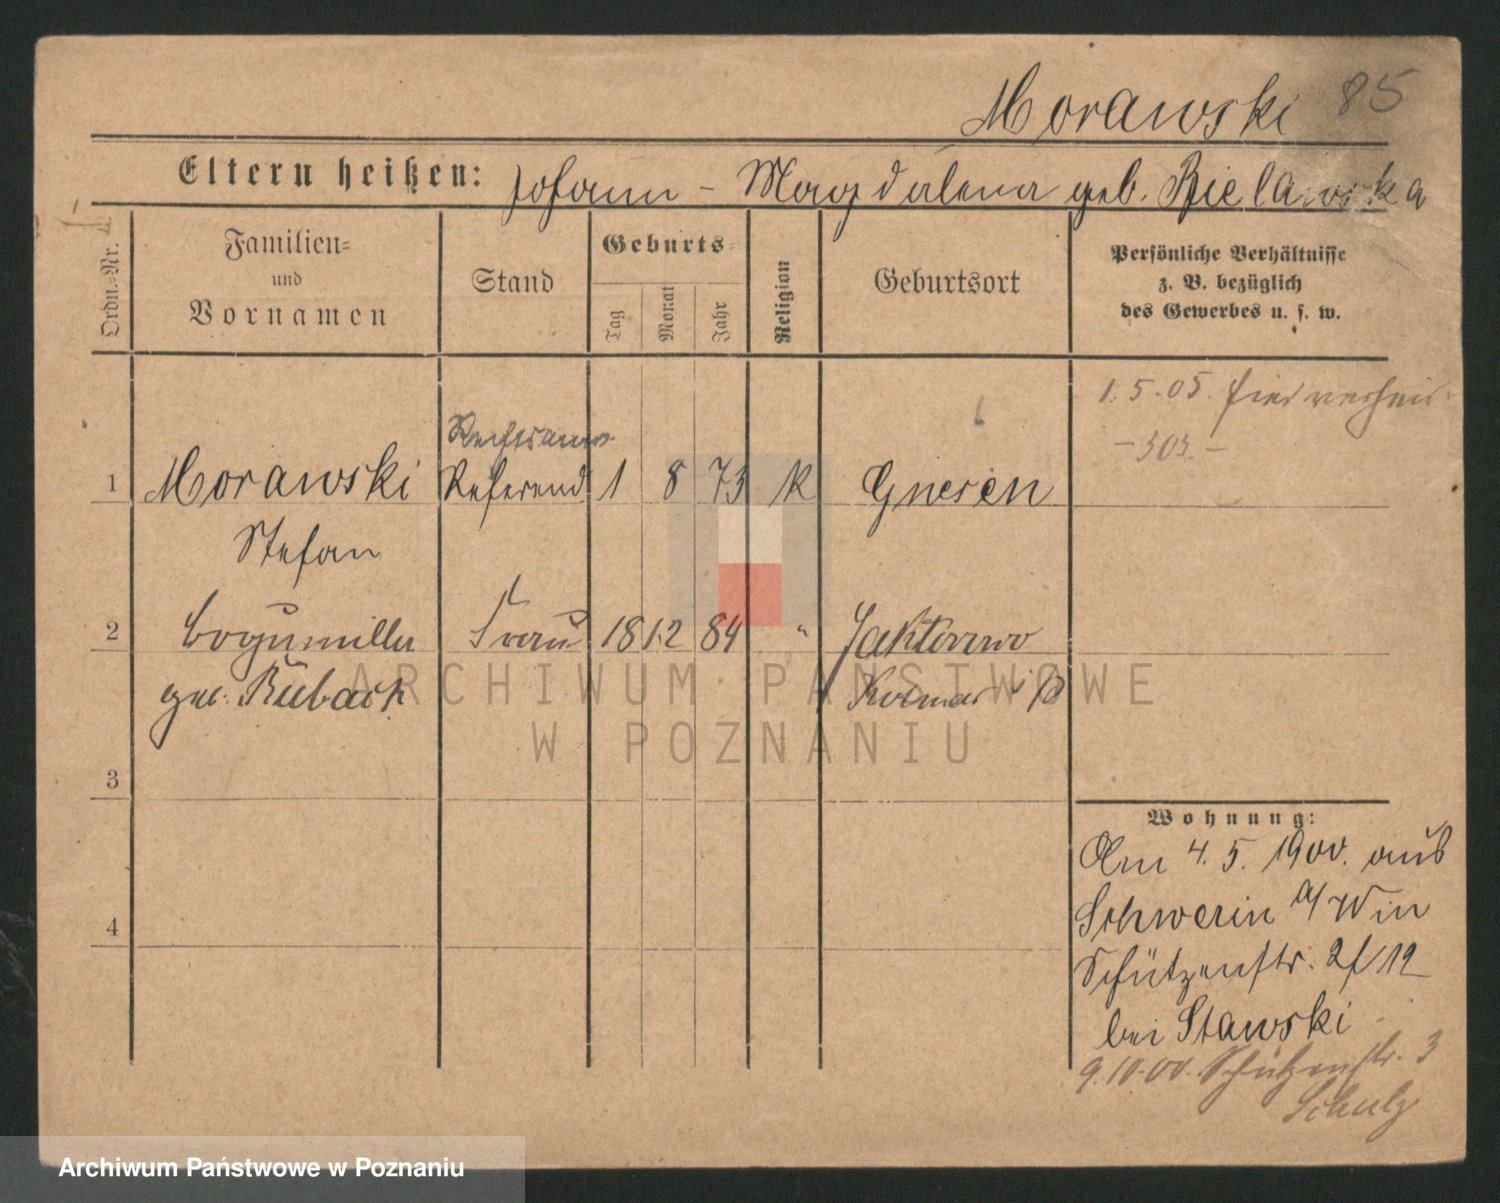 Morawski 85
Eltern heißen: Johann - Magdalena geb. Bielawska
Ordn.-Nr.
Familien-
und
Vornamen
Stand
Geburts-
Tag
Monat
Jahr
Religion
Geburtsort
Persönliche Verhältnisse
z. B. bezüglich
des Gewerbes u. s. w.
1.5.05. hier
- 303. -
1 Morawski Referend 1 8 73 K Gnesen
Stefan
2 Bogumilla Frau 18 12 84 " Jaktorowo
geb. Kolmar i/P
ARCHIWUM PAŃSTWOWE
W POZNANIU
3
4
Wohnung:
Am 4.5. 1900. aus
Schwerin a/W in
Schützenstr. 2 f/12
bei Stawski
9.10.00. Schützenstr. 3
Schulz
Archiwum Państwowe w Poznaniu